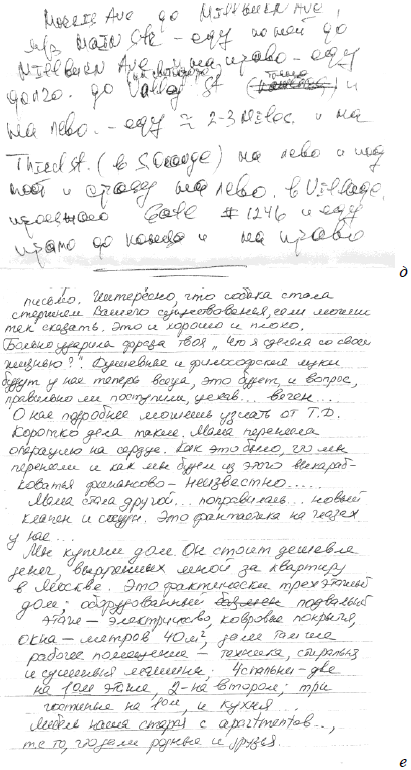 Morris Ave до Millburn Ave,
Main Str – еду по ней до
Millburn Ave и на право – еду
долго. до Valley St
на лево. – еду ≈ 2-3 miles. и на
Third St. (в S. Orange) на лево и под
мост и сразу на лево. в Village,
Gate #1246 и еду
прямо до конца и на право
д
письмо. Интересно, что собака стала
стержнем Вашего существования, если можно
так сказать. Это и хорошо и плохо.
Больно ударила фраза твоя „Что я сделала со своей
жизнью?". Душевные и философские муки
будут у нас теперь всегда, это будет, и вопрос,
правильно ли поступили, уехав... вечен...
О нас подробнее можешь узнать от Т.Д.
Коротко дела такие. Мама перенесла
операцию на сердце. Как это было, что мы
перенесли и как мы будем из этого выкараб-
коваться финансово – неизвестно.....
Мама стала другой... поправилась... новый
клапан и сосуды. Это фантастика на глазах
у нас...
Мы купили дом. Он стоит дешевле
денег, вырученных мной за квартиру
в Москве. Это фактически трехэтажный
дом; оборудованный подвальный
этаж – электричество, ковровые покрытия,
окна – метров 40м², далее там же
рабочее помещение – техника, стиральная
и сушильная машины; 4 спальни – две
на 1ом этаже, 2 – на втором; три
гостиные на 1ом, и кухня...
Мебель наша старая с apartmentов..,
те то, что дали родные и друзья.
е